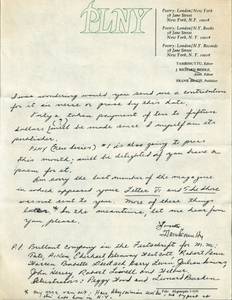 PLNY
Poetry: London/New York
18 Jane Street
New York, N.Y. 10014
Poetry: London/N.Y. Books
18 Jane Street
New York, N.Y. 10014
Poetry: London/N.Y. Records
18 Jane Street
New York, N.Y. 10014
TAMBIMUTTU, Editor
J. RICHARD
Asst. Editor
I was wondering would you send me a contribution
for it in verse or prose by this date.
Only a token payment of ten to fifteen
dollars will be made since I myself am its
publisher.
(New Series) #1 is also going to press
this month; will be delighted if you have a
poem for it.
Am sorry the last number of the magazine
in which appeared your Letter To and
was not sent to you. More of these any
In the meantime, let me hear from
you, please.
P.S. Brilliant company in the Festschrift for M.M.:
Tate, Aiken, Robert Penn
Warren
John Hersey, Robert Lowell and
: Peggy Hood and